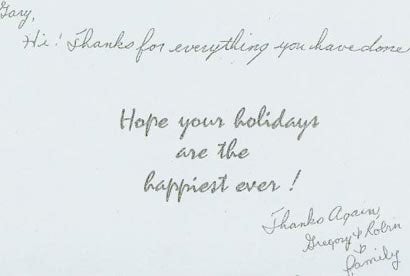 Gary,
Hi! Thanks for everything you have done
Hope your holidays
are the
happiest ever!
Thanks Again,
Gregory & Robin
&
family